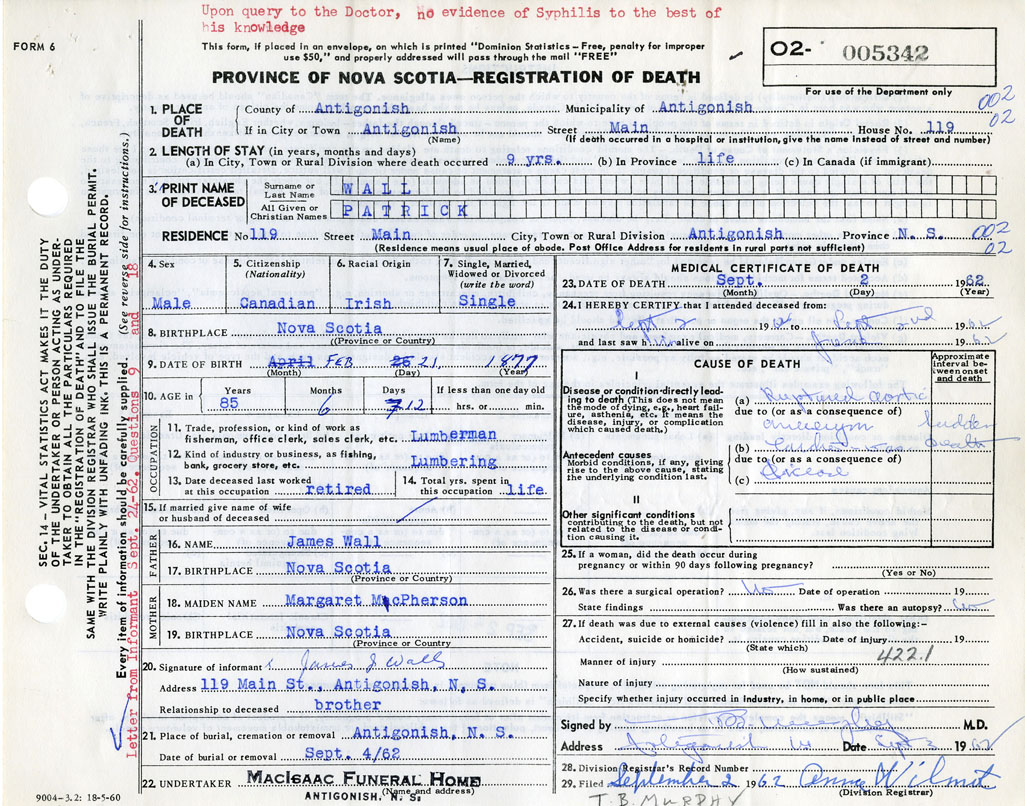 Upon query to the Doctor, no evidence of Syphilis to the best of
his knowledge
FORM 6
This form, if placed in an envelope, on which is printed "Dominion Statistics – Free, penalty for improper
use $50," and properly addressed will pass through the mail "FREE"
O2- 005342
For use of the Department only
PROVINCE OF NOVA SCOTIA—REGISTRATION OF DEATH
002
02
1. PLACE OF DEATH { County of Antigonish Municipality of Antigonish
{ If in City or Town Antigonish Street Main House No. 119
(Name) (If death occurred in a hospital or institution, give the name instead of street and number)
2. LENGTH OF STAY (in years, months and days)
(a) In City, Town or Rural Division where death occurred 9 yrs. (b) In Province life (c) In Canada (if immigrant)
3. PRINT NAME OF DECEASED
Surname or Last Name WALL
All Given or Christian Names PATRICK
RESIDENCE No 119 Street Main City, Town or Rural Division Antigonish Province N. S.
(Residence means usual place of abode. Post Office Address for residents in rural parts not sufficient)
002
02
4. Sex Male
5. Citizenship (Nationality) Canadian
6. Racial Origin Irish
7. Single, Married, Widowed or Divorced (write the word) Single
8. BIRTHPLACE Nova Scotia
(Province or Country)
9. DATE OF BIRTH April FEB 26 21, 1877
(Month) (Day) (Year)
10. AGE in Years 85 Months 6 Days 7 12 If less than one day old hrs. or min.
OCCUPATION
11. Trade, profession, or kind of work as
fisherman, office clerk, sales clerk, etc. Lumberman
12. Kind of industry or business, as fishing,
bank, grocery store, etc. Lumbering
13. Date deceased last worked
at this occupation retired
14. Total yrs. spent in
this occupation life
15. If married give name of wife
or husband of deceased
FATHER
16. NAME James Wall
17. BIRTHPLACE Nova Scotia
(Province or Country)
MOTHER
18. MAIDEN NAME Margaret MacPherson
19. BIRTHPLACE Nova Scotia
(Province or Country)
20. Signature of informant James J Wall
Address 119 Main St., Antigonish, N. S.
Relationship to deceased brother
21. Place of burial, cremation or removal Antigonish, N. S.
Date of burial or removal Sept. 4/62
22. UNDERTAKER MacIsaac Funeral Home
(Name and address)
ANTIGONISH. N. S.
9004-3.2: 18-5-60
MEDICAL CERTIFICATE OF DEATH
23. DATE OF DEATH Sept. 2 1962
(Month) (Day) (Year)
24. I HEREBY CERTIFY that I attended deceased from:
Sept 2 1962 to Sept 2nd 1962
and last saw him alive on 1962
CAUSE OF DEATH
Approximate interval between onset and death
I
Disease or condition directly leading to death (This does not mean the mode of dying, e.g., heart failure, asthenia, etc. It means the disease, injury, or complication which caused death.)
(a) Ruptured aortic
due to (or as a consequence of)
aneurysm sudden
death
Antecedent causes
Morbid conditions, if any, giving rise to the above cause, stating the underlying condition last.
(b)
due to (or as a consequence of)
(c) Disease
II
Other significant conditions
contributing to the death, but not related to the disease or condition causing it.
25. If a woman, did the death occur during
pregnancy or within 90 days following pregnancy?
(Yes or No)
26. Was there a surgical operation? No Date of operation 19
State findings Was there an autopsy? No
27. If death was due to external causes (violence) fill in also the following:-
Accident, suicide or homicide? Date of injury 19
(State which)
422.1
Manner of injury
(How sustained)
Nature of injury
Specify whether injury occurred in industry, in home, or in public place
Signed by M.D.
Address Antigonish Date Sept 3 1962
28. Division Registrar's Record Number
29. Filed September 2 1962 Anna Wilmot
(Division Registrar)
T. B. MURPHY
SEC. 14 – VITAL STATISTICS ACT MAKES IT THE DUTY
OF THE UNDERTAKER OR PERSON ACTING AS UNDER-
TAKER TO OBTAIN ALL THE PARTICULARS REQUIRED
IN THE "REGISTRATION OF DEATH" AND TO FILE THE
SAME WITH THE DIVISION REGISTRAR WHO SHALL ISSUE THE BURIAL PERMIT.
WRITE PLAINLY WITH UNFADING INK. THIS IS A PERMANENT RECORD.
Every item of information should be carefully supplied. (See reverse side for instructions.)
Letter from Informant Sept. 24-62, Questions 9 and 18